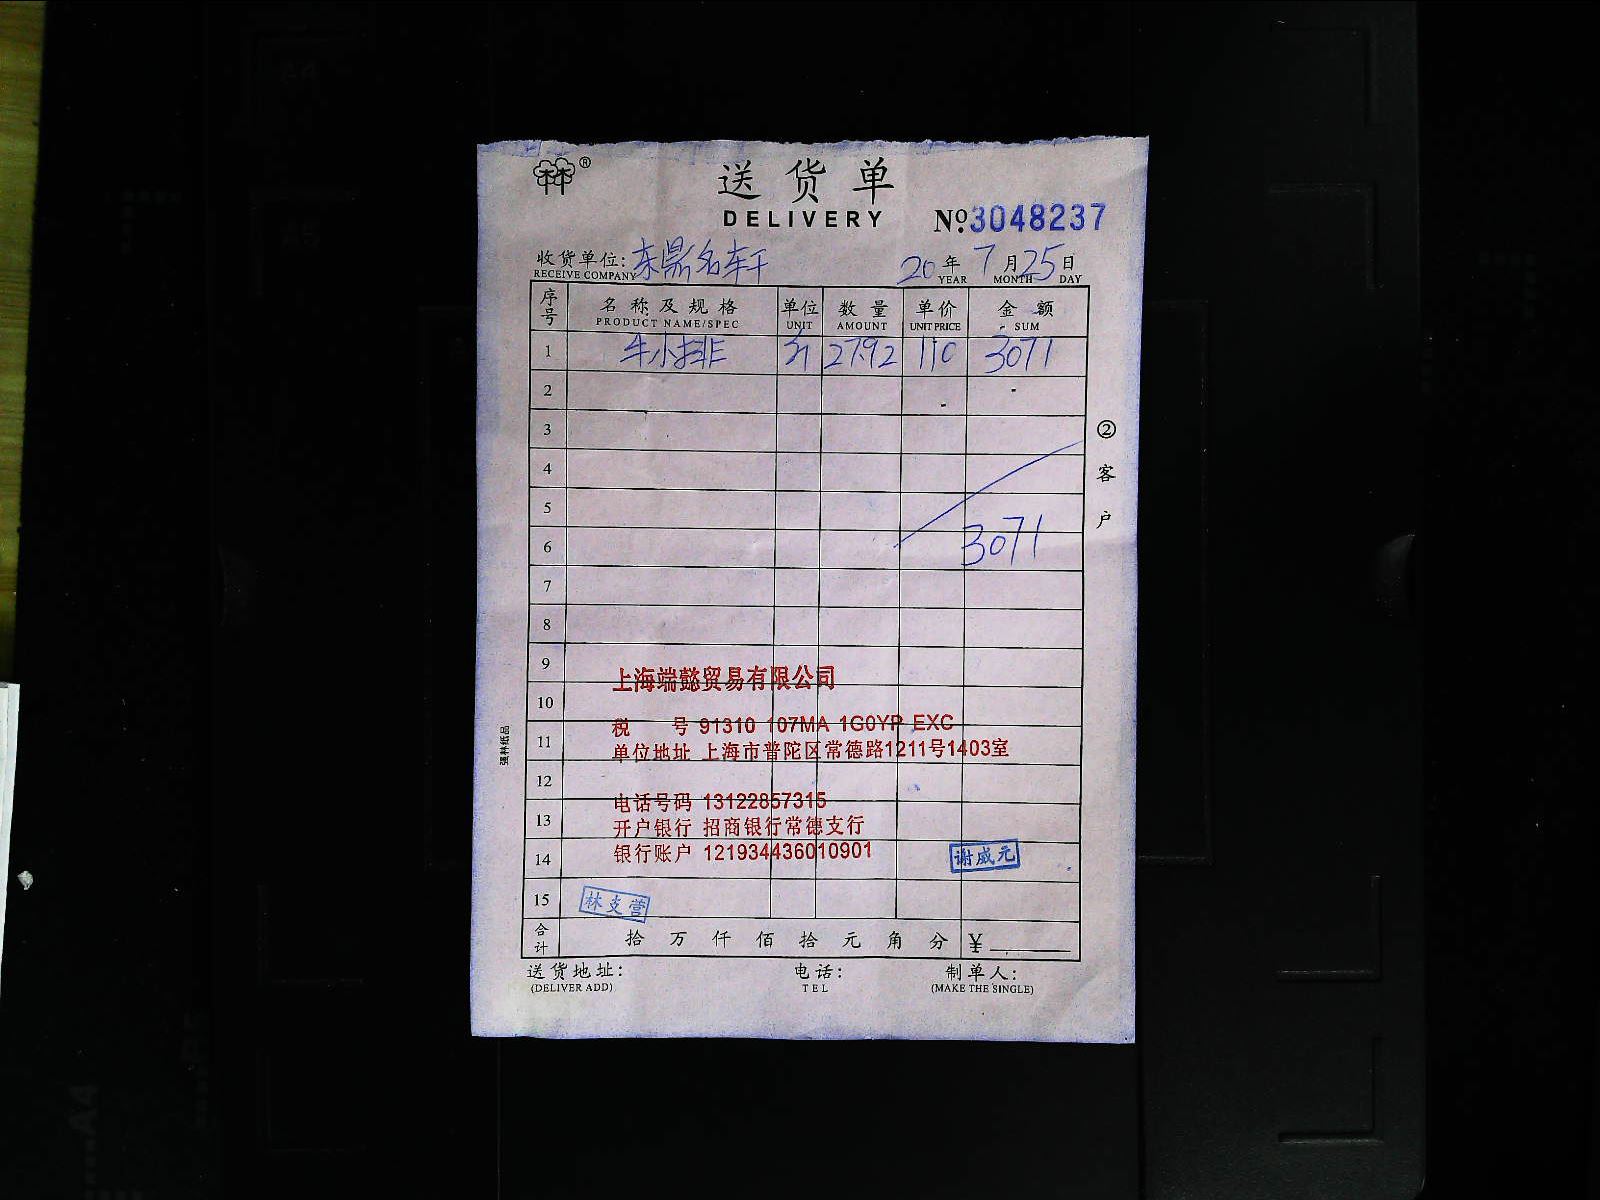 ®
送货单
DELIVERY
№ 3048237
收货单位: 东鼎名轩 20年 7月 25日
RECEIVE COMPANY YEAR MONTH DAY
序号 名称及规格 单位 数量 单价 金额
PRODUCT NAME/SPEC UNIT AMOUNT UNIT PRICE SUM
1 牛小排 27.92 110 3071
2
3
4
5
6 3071
7
8
9
上海端懿贸易有限公司
10
税 号 91310 107MA 1G0YP EXC
11
单位地址 上海市普陀区常德路1211号1403室
12
电话号码 13122857315
13
开户银行 招商银行常德支行
14
银行账户 121934436010901
谢成元
15
林支营
合计 拾 万 仟 佰 拾 元 角 分 ¥
送货地址: 电话: 制单人:
(DELIVER ADD) TEL (MAKE THE SINGLE)
②客户
强林纸品